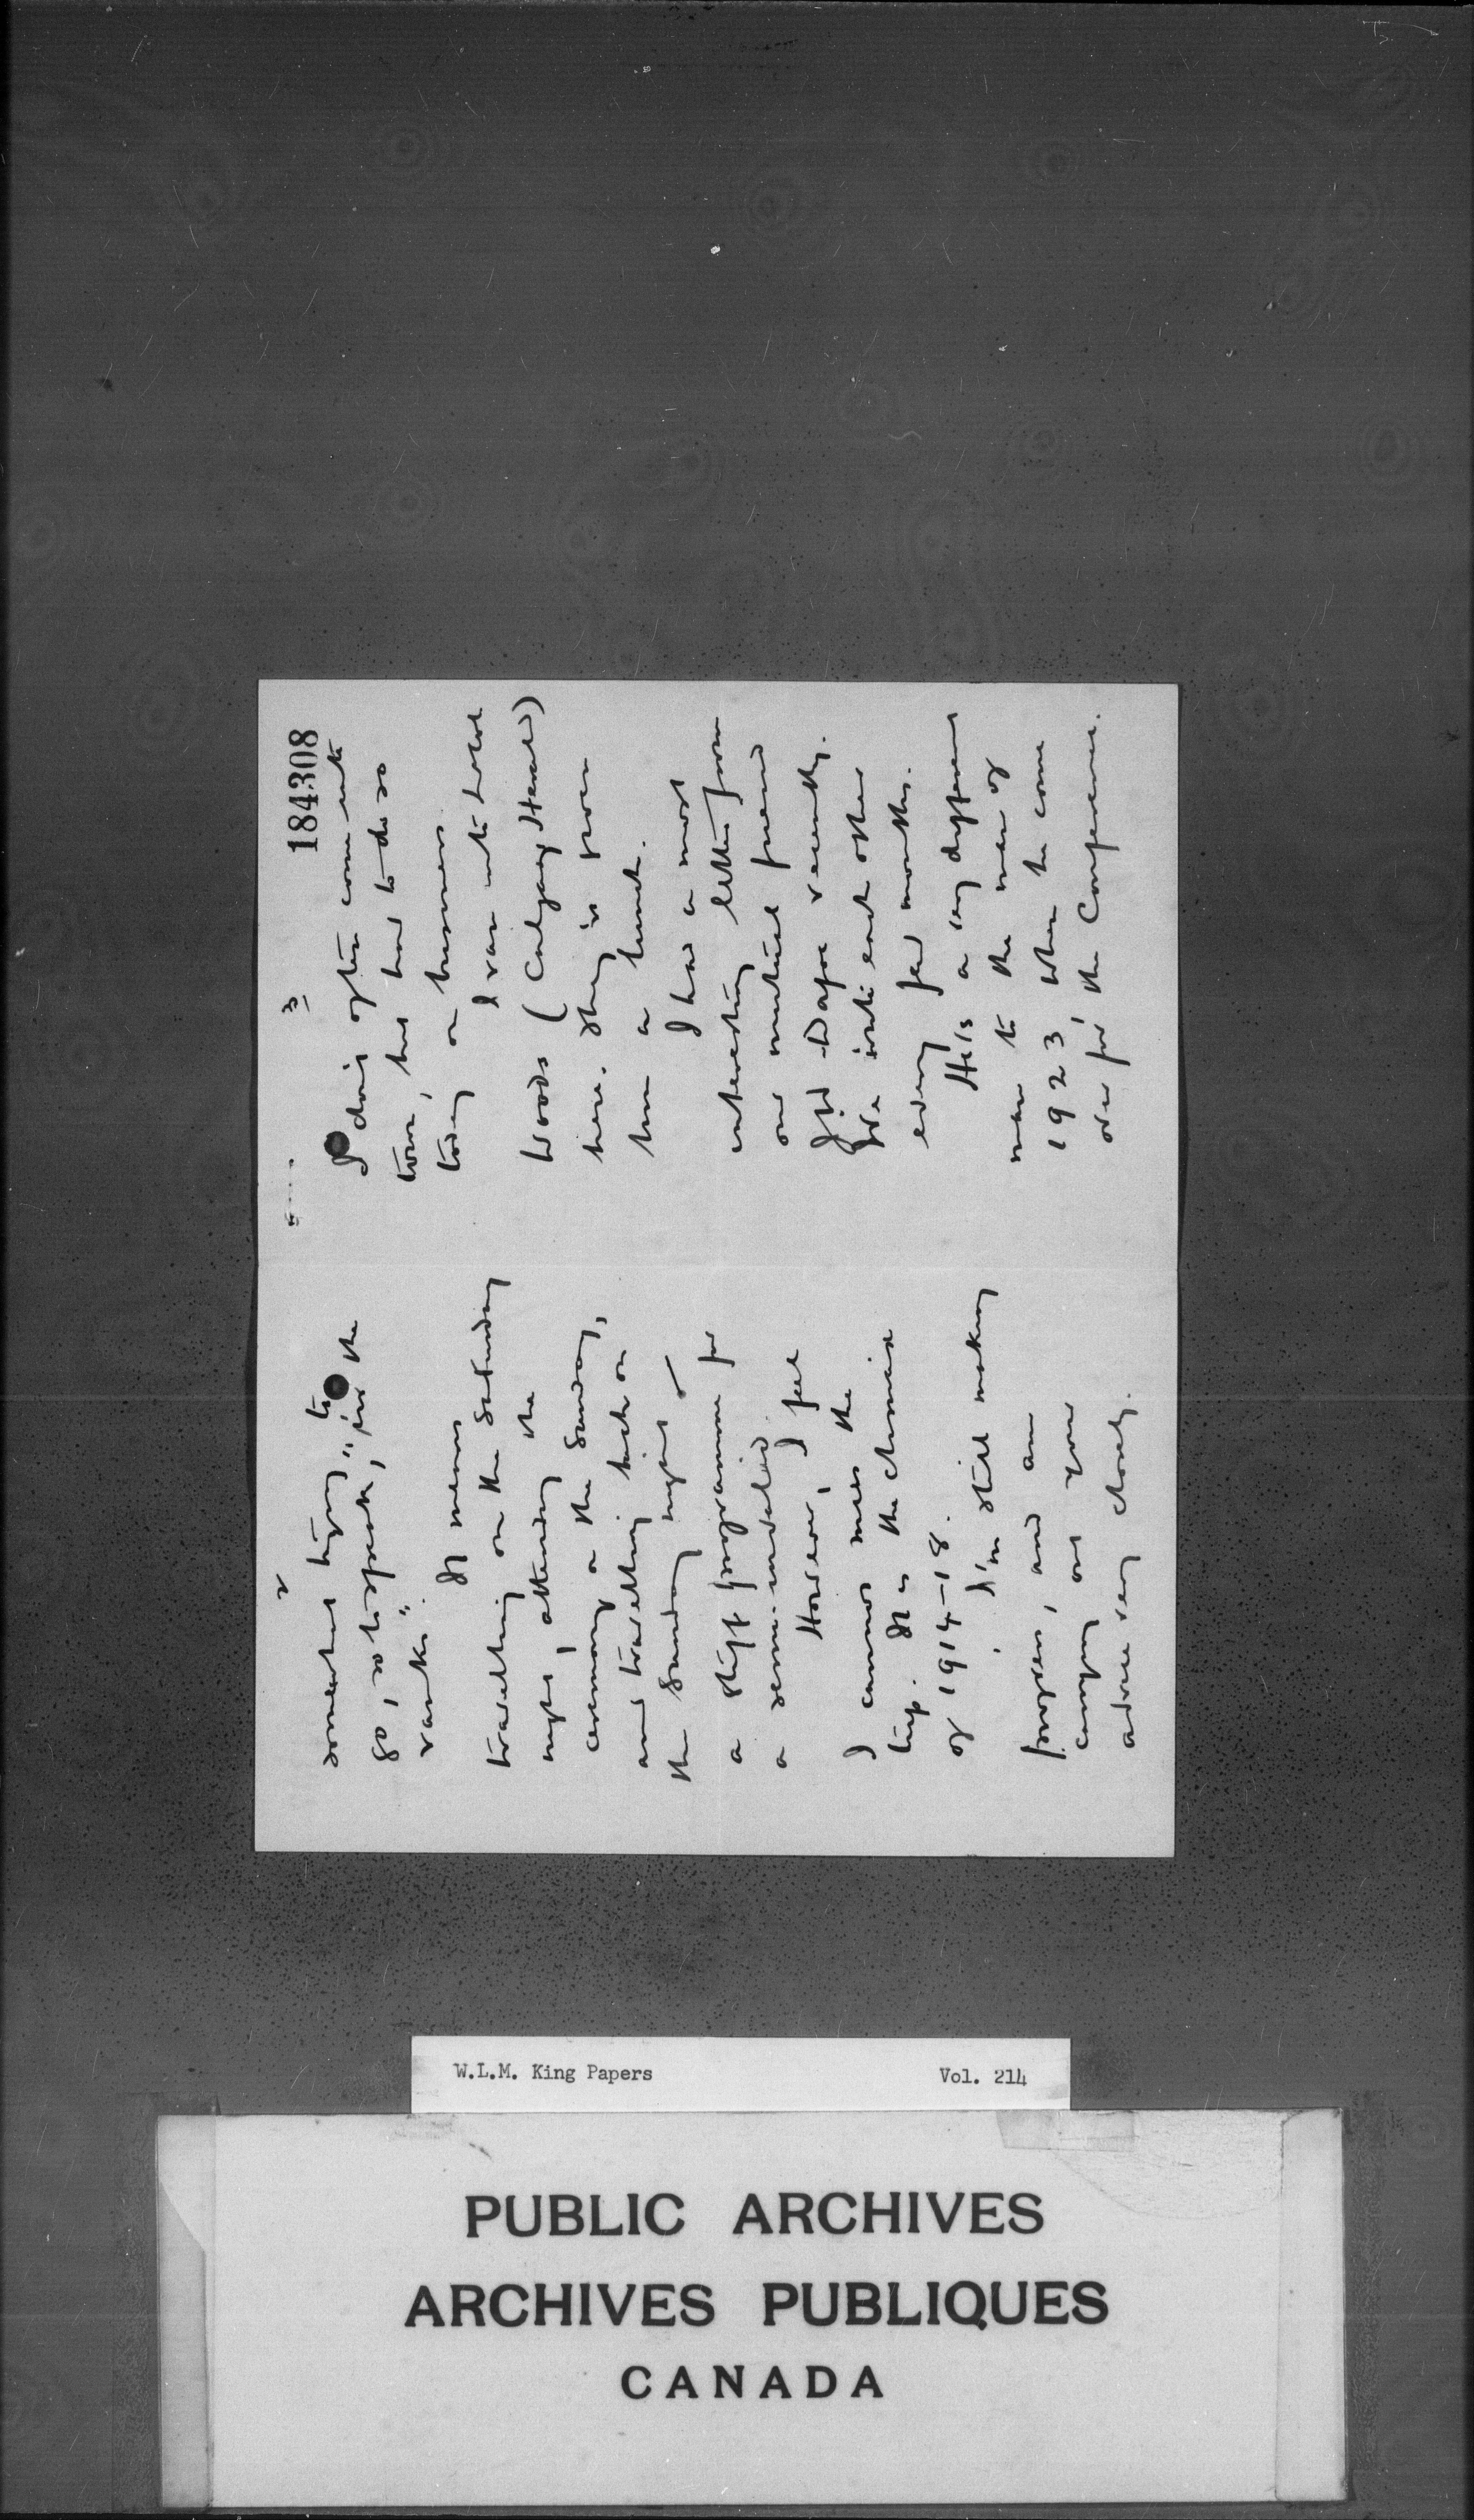 2
somewhat trying "to
go, so to speak, "in the
ranks".
It means
travelling on the Saturday
night, attending the
ceremony on the Sunday,
and travelling back on
the Sunday night —
a stiff programme for
a semi-invalid.
However, I feel
I cannot miss the
trip. It is the
of 1914–18.
I'm still making
progress, and am
carrying out your
advice very closely.
3
184308
I don't often come into
town, but had to do so
today on business.
I ran into
Woods (Calgary Herald)
here. They're
him a lunch.
I had a most
interesting letter from
our mutual friend
Dafoe recently.
We write each other
every few months.
He is a very different
man to the man of
1923 when he came
over for the Conference.
W.L.M. King Papers Vol. 214
PUBLIC ARCHIVES
ARCHIVES PUBLIQUES
CANADA